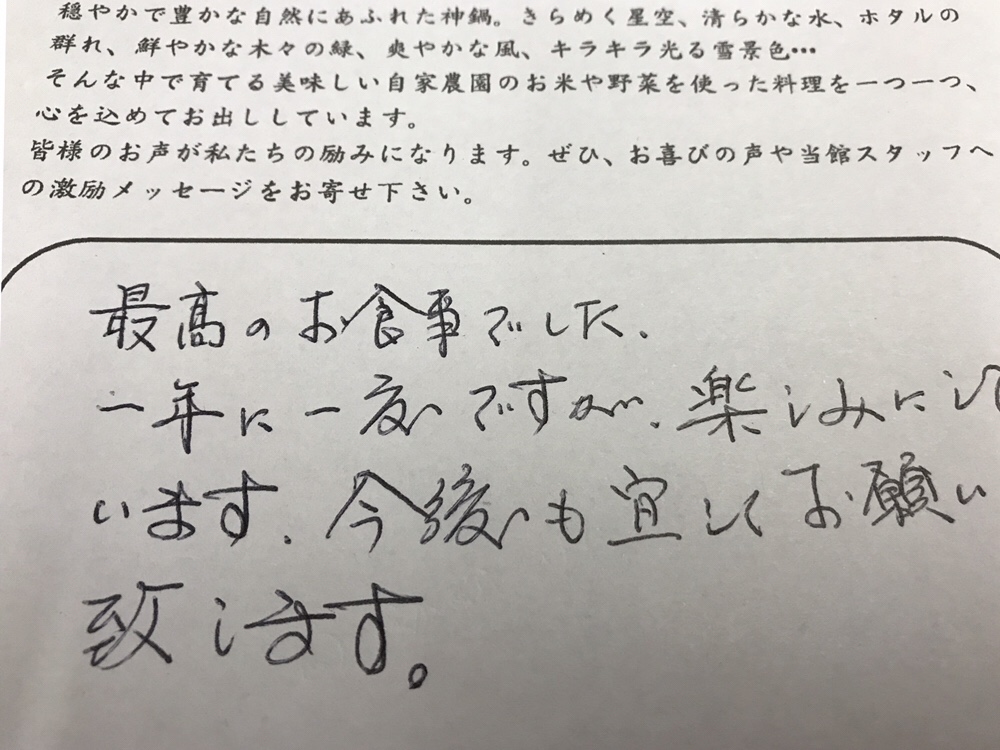 穏やかで豊かな自然にあふれた神鍋。きらめく星空、清らかな水、ホタルの
群れ、鮮やかな木々の緑、爽やかな風、キラキラ光る雪景色…
そんな中で育てる美味しい自家農園のお米や野菜を使った料理を一つ一つ、
心を込めてお出ししています。
皆様のお声が私たちの励みになります。ぜひ、お喜びの声や当館スタッフへ
の激励メッセージをお寄せ下さい。
最高のお食事でした、
一年に一度ですが、楽しみにして
います、今後も宜しくお願い
致します。